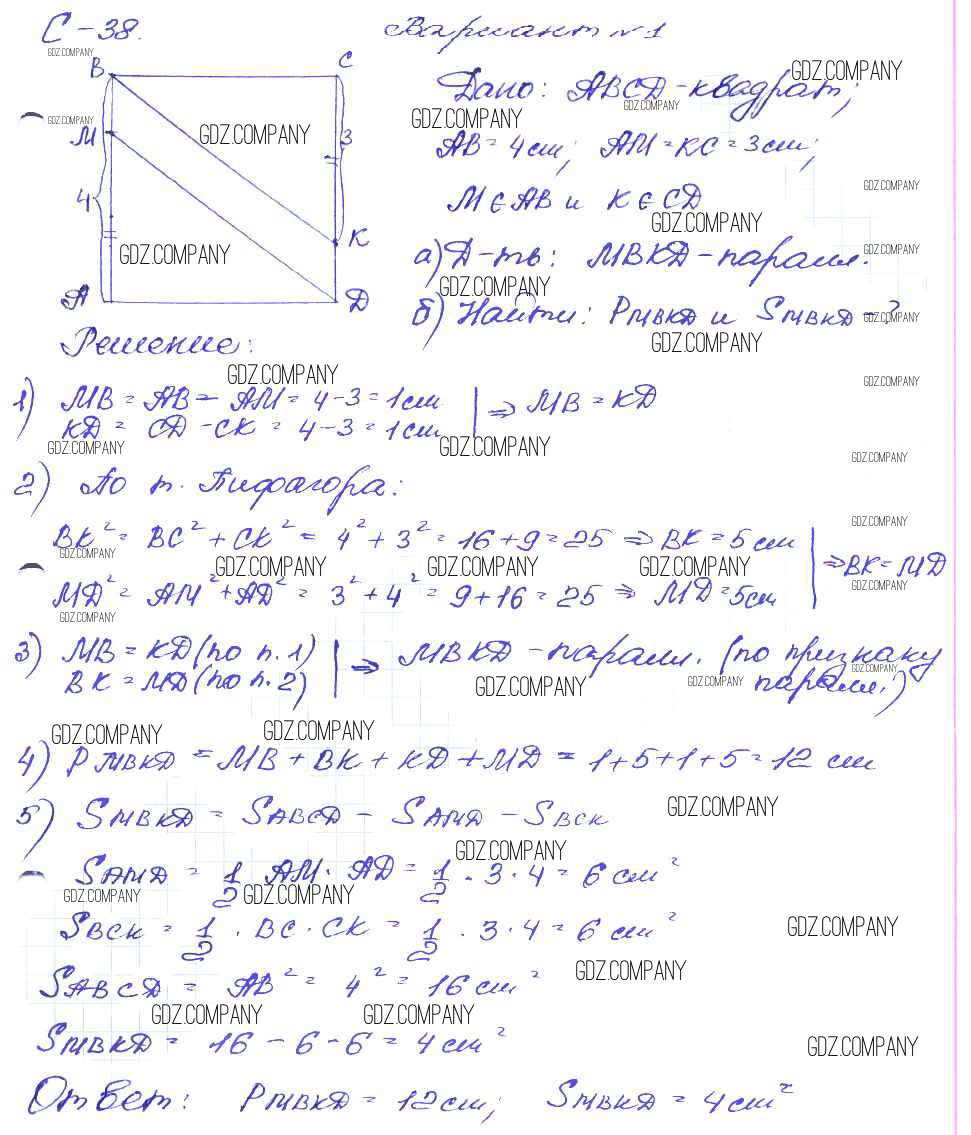 С-38. Вариант №1
B C
M 3
4
K
А Д
Дано: ABCД - квадрат;
AB = 4см; AM = KC = 3см;
M ∈ AB и K ∈ CД
а) Д-ть: MBKД - паралл.
б) Найти: PMBKД и SMBKД - ?
Решение:
1) MB = AB - AM = 4-3 = 1см
KД = CД - CK = 4-3 = 1см ⇒ MB = KД
2) По т. Пифагора:
BK² = BC² + CK² = 4² + 3² = 16+9 = 25 ⇒ BK = 5 см
MД² = AM² + AД² = 3² + 4² = 9+16 = 25 ⇒ MД = 5см ⇒ BK = MД
3) MB = KД (по п. 1)
BK = MД (по п. 2) ⇒ MBKД - паралл. (по признаку
паралл.)
4) P MBKД = MB + BK + KД + MД = 1+5+1+5 = 12 см
5) SMBKД = SABCД - SAMД - SBCK
SAMД = 1/2 AM · AД = 1/2 · 3 · 4 = 6 см²
SBCK = 1/2 · BC · CK = 1/2 · 3 · 4 = 6 см²
SABCД = AB² = 4² = 16 см²
SMBKД = 16 - 6 - 6 = 4 см²
Ответ: PMBKД = 12см; SMBKД = 4 см²
GDZ.COMPANY